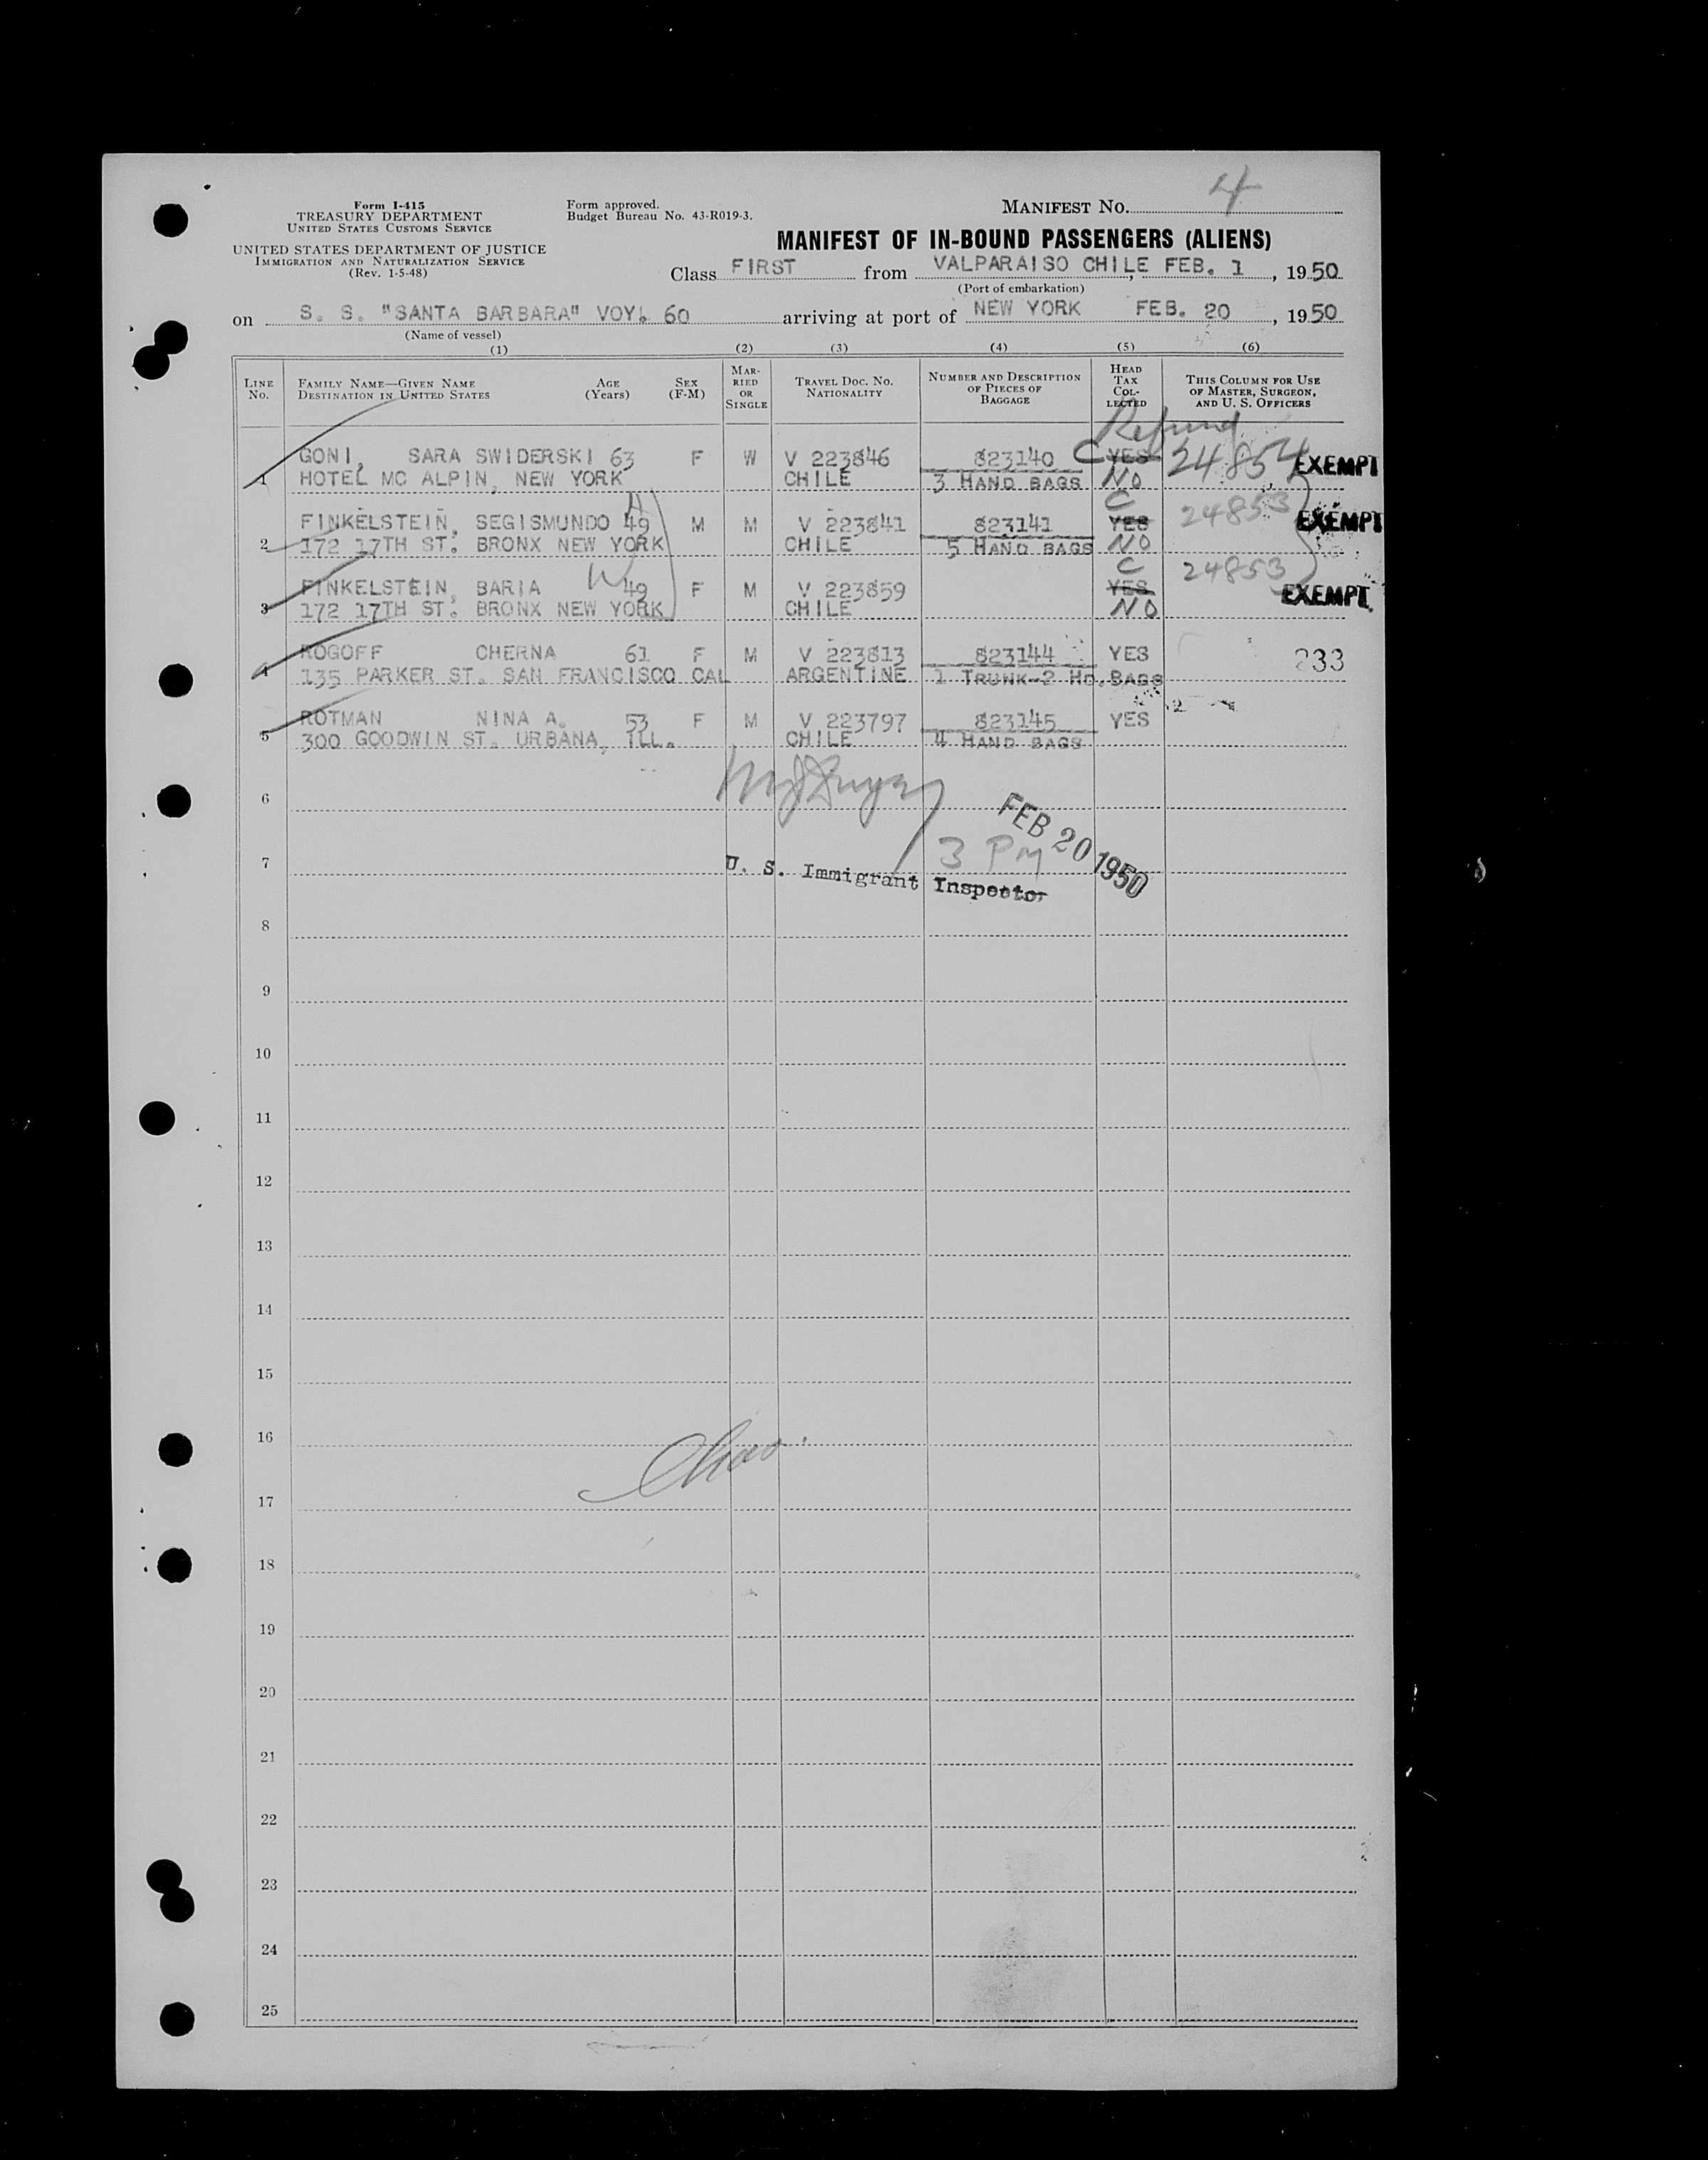 Form I-415
TREASURY DEPARTMENT
UNITED STATES CUSTOMS SERVICE
UNITED STATES DEPARTMENT OF JUSTICE
IMMIGRATION AND NATURALIZATION SERVICE
(Rev. 1-5-48)
Form approved.
Budget Bureau No. 43-R019-3.
MANIFEST NO. 4
MANIFEST OF IN-BOUND PASSENGERS (ALIENS)
Class FIRST from VALPARAISO CHILE, FEB. 1, 1950
(Port of embarkation)
on S. S. "SANTA BARBARA" VOY. 60 arriving at port of NEW YORK FEB. 20, 1950
(Name of vessel)
(1) (2) (3) (4) (5) (6)
LINE NO.
FAMILY NAME—GIVEN NAME
DESTINATION IN UNITED STATES
AGE (Years)
SEX (F-M)
MARRIED OR SINGLE
TRAVEL DOC. NO.
NATIONALITY
NUMBER AND DESCRIPTION OF PIECES OF BAGGAGE
HEAD TAX COLLECTED
THIS COLUMN FOR USE OF MASTER, SURGEON, AND U. S. OFFICERS
Refund
1 GONI, SARA SWIDERSKI 63 F W V 223846 823140 C YES 24854 EXEMPT
HOTEL MC ALPIN, NEW YORK CHILE 3 HAND BAGS NO
2 FINKELSTEIN, SEGISMUNDO 49 M M V 223841 823141 C YES 24853 EXEMPT
172 17TH ST. BRONX NEW YORK CHILE 5 HAND BAGS NO
3 FINKELSTEIN, BARIA W 49 F M V 223859 C YES 24853 EXEMPT
172 17TH ST. BRONX NEW YORK CHILE NO
4 ROGOFF CHERNA 61 F M V 223813 823144 YES 233
135 PARKER ST. SAN FRANCISCO CAL ARGENTINE 1 TRUNK-2 HD. BAGS
5 ROTMAN NINA A. 53 F M V 223797 823145 YES
300 GOODWIN ST. URBANA, ILL. CHILE 4 HAND BAGS
6
FEB 20 1950
3 PM
7
U. S. Immigrant Inspector
8
9
10
11
12
13
14
15
16
17
18
19
20
21
22
23
24
25